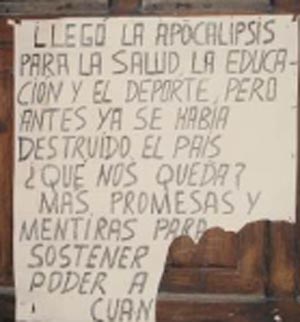 LLEGÓ LA APOCALIPSIS
PARA LA SALUD, LA EDUCA-
CION Y EL DEPORTE, PERO
ANTES YA SE HABÍA
DESTRUÍDO EL PAÍS
¿QUE NOS QUEDA?
MAS PROMESAS Y
MENTIRAS PARA
SOSTENER
PODER A
CUAN